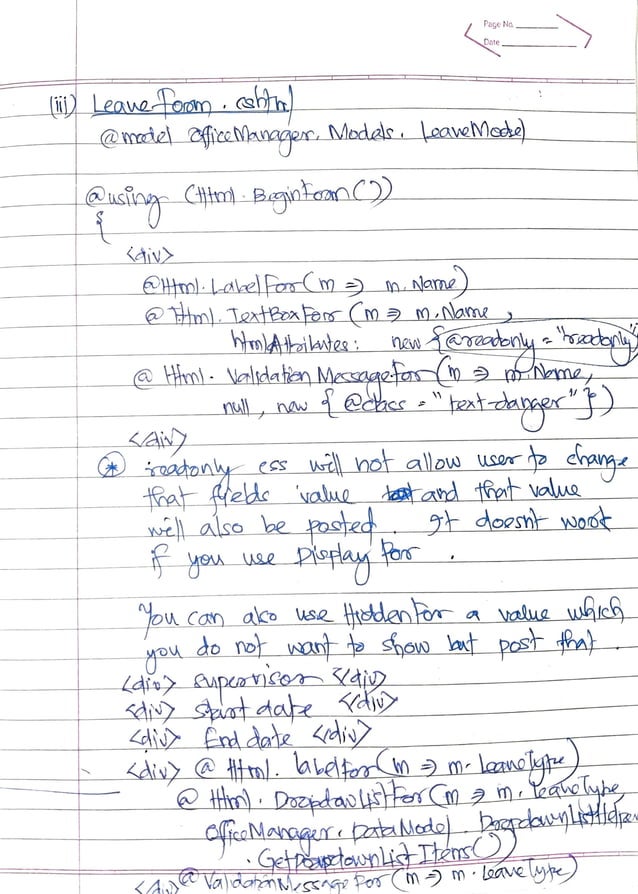 Page No.
Date
(iii) LeaveForm.cshtml
@model OfficeManager.Models.LeaveModel
@using (Html.BeginForm())
{
<div>
@Html.LabelFor(m => m.Name)
@Html.TextBoxFor(m => m.Name,
htmlAttributes: new {@readonly = "readonly"
@Html.ValidationMessageFor(m => m.Name,
null, new {@class = "text-danger"})
</div>
* readonly css will not allow user to change
that fields value and that value
will also be posted. It doesn't work
if you use Display For.
You can also use HiddenFor a value which
you do not want to show but post that.
<div> supervisor </div>
<div> start date </div>
<div> End date </div>
<div> @Html.labelfor(m => m.LeaveType)
@Html.DropdowListFor(m => m.leaveType,
OfficeManager.DataModel.DropdownListHelper
.GetDropdownListItems())
@ValidationMessageFor(m => m.LeaveType)